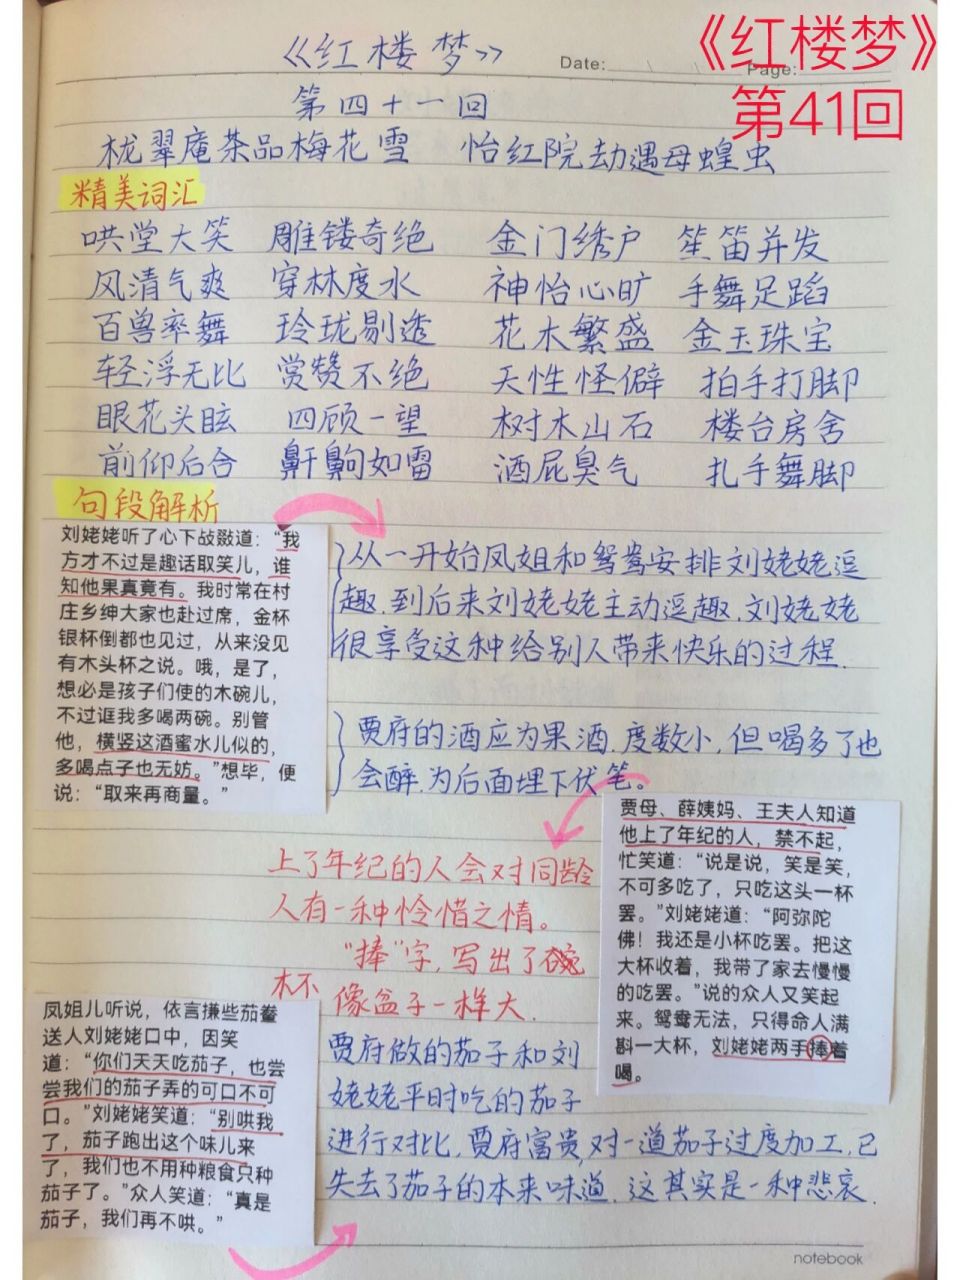 《红楼梦》
Date:
Page:
《红楼梦》
第41回
第四十一回
栊翠庵茶品梅花雪 怡红院劫遇母蝗虫
精美词汇
哄堂大笑 雕镂奇绝 金门绣户 笙笛并发
风清气爽 穿林度水 神怡心旷 手舞足蹈
百兽率舞 玲珑剔透 花木繁盛 金玉珠宝
轻浮无比 赏赞不绝 天性怪僻 拍手打脚
眼花头眩 四顾一望 树木山石 楼台房舍
前仰后合 鼾齁如雷 酒屁臭气 扎手舞脚
句段解析
刘姥姥听了心下敁敠道：“我
方才不过是趣话取笑儿，谁
知他果真竟有。我时常在村
庄乡绅大家也赴过席，金杯
银杯倒都也见过，从来没见
有木头杯之说。哦，是了，
想必是孩子们使的木碗儿，
不过诓我多喝两碗。别管
他，横竖这酒蜜水儿似的，
多喝点子也无妨。”想毕，便
说：“取来再商量。”
从一开始凤姐和鸳鸯安排刘姥姥逗
趣.到后来刘姥姥主动逗趣.刘姥姥
很享受这种给别人带来快乐的过程.
贾府的酒应为果酒.度数小，但喝多了也
会醉.为后面埋下伏笔。
贾母、薛姨妈、王夫人知道
他上了年纪的人，禁不起，
忙笑道：“说是说，笑是笑，
不可多吃了，只吃这头一杯
罢。”刘姥姥道：“阿弥陀
佛！我还是小杯吃罢。把这
大杯收着，我带了家去慢慢
的吃罢。”说的众人又笑起
来。鸳鸯无法，只得命人满
斟一大杯，刘姥姥两手捧着
喝。
上了年纪的人会对同龄
人有一种怜惜之情。
“捧”字，写出了碗
杯 像盆子一样大.
凤姐儿听说，依言搛些茄鲞
送入刘姥姥口中，因笑
道：“你们天天吃茄子，也尝
尝我们的茄子弄的可口不可
口。”刘姥姥笑道：“别哄我
了，茄子跑出这个味儿来
了，我们也不用种粮食只种
茄子了。”众人笑道：“真是
茄子，我们再不哄。”
贾府做的茄子和刘
姥姥平时吃的茄子
进行对比.贾府富贵,对一道茄子过度加工，已
失去了茄子的本来味道.这其实是一种悲哀.
notebook